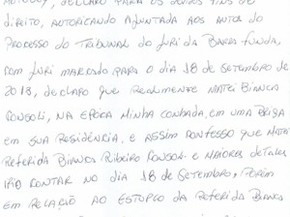 DECLARO PARA OS DEVIDOS FINS DE
DIREITO, AUTORIZANDO A JUNTADA AOS AUTOS DO
PROCESSO DO TRIBUNAL DO JURI DA BARRA FUNDA,
COM JURI MARCADO PARA O DIA 18 DE SETEMBRO DE
2013, DECLARO QUE REALMENTE MATEI BIANCA
CONSOLI, NA ÉPOCA MINHA CUNHADA, EM UMA BRIGA
EM SUA RESIDÊNCIA, E ASSIM CONFESSO QUE MATEI
REFERIDA BIANCA RIBEIRO CONSOLI E MAIORES DETALHES
IREI CONTAR NO DIA 18 DE SETEMBRO, PORÉM
EM RELAÇÃO AO ESTUPRO DA REFERIDA BIANCA